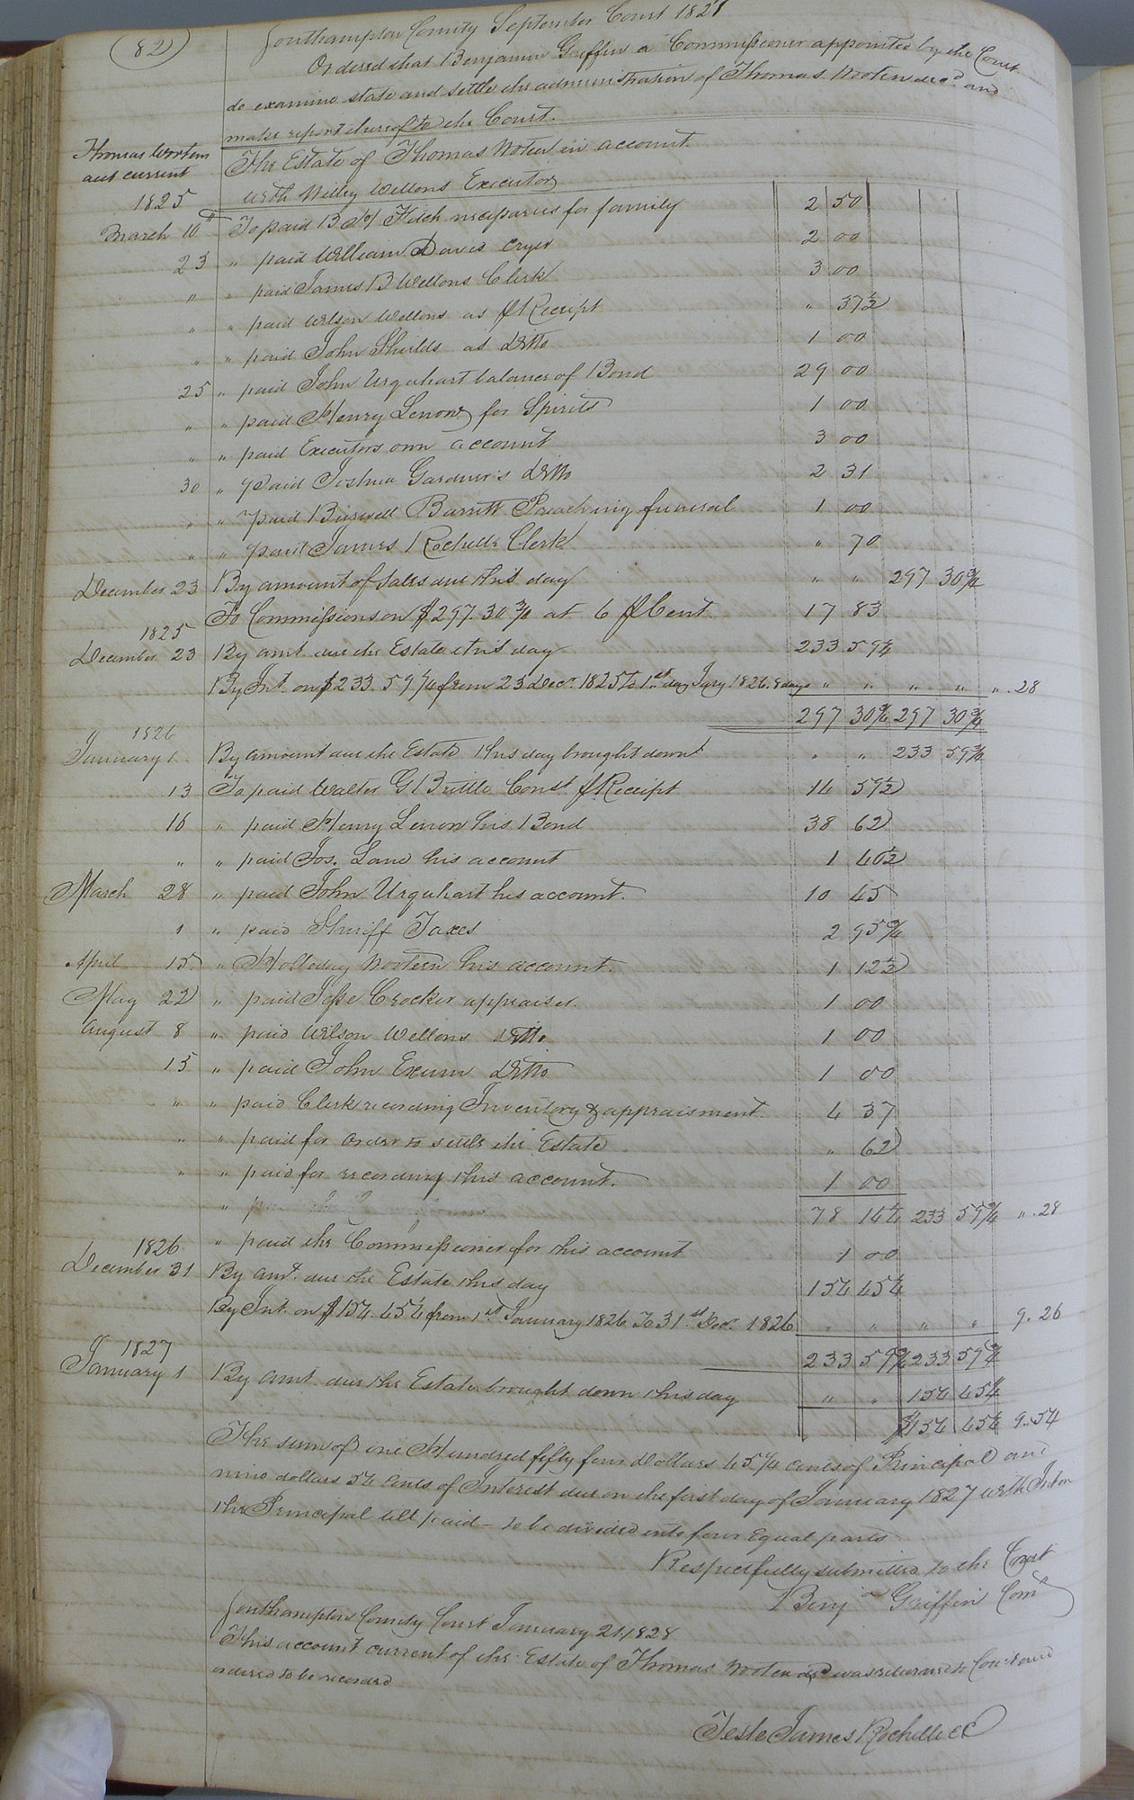 82
Southampton County September Court 1827
Ordered that Benjamin Griffin a Commissioner appointed by the Court
do examine state and settle the administration of Thomas Wooten decd and
make report thereof to the Court.
Thomas Wooten
acct current
The Estate of Thomas Wooten in account
1825 with Willey Wellons Executor
March 10th To paid B H Fitch necessaries for family 2 50
23 " paid William Davis Cryer 2 00
" " paid James B Wellons Clerk 3 00
" " paid Wilson Wellons as pr Receipt " 37½
" " paid John Shields as Ditto 1 00
25 " paid John Urquhart balance of Bond 29 00
" " paid Henry Lenow for Spirits 1 00
" " paid Executors own account 3 00
30 " paid Joshua Gardner's Ditto 2 31
" " paid Burwell Barrett Preaching funeral 1 00
" " paid James Rochelle Clerk " 70
December 23 By amount of Sales due this day " " 297 30¾
To Commissions on $297.30¾ at 6 pr Cent 17 83
1825
December 23 By amt due the Estate this day 233 59¼
By Int. on $233.59¼ from 23 Decr. 1825 to 1st day Jany 1826. 8 days " " " " " .28
297 30¾ 297 30¾
1826
January 1 By amount due the Estate this day brought down " " 233 59¾
13 To paid Walter G Brittle Const pr Receipt 14 59½
16 " paid Henry Lenow his Bond 38 62
" " paid Jos. Land his account 1 40½
March 28 " paid John Urquhart his account. 10 45
" " paid Sheriff Taxes 2 95¾
April 15 " Holladay Wooten his account. 1 12½
May 22 " paid Jesse Crocker appraiser. 1 00
August 8 " paid Wilson Wellons Ditto. 1 00
15 " paid John Exum Ditto 1 00
" " paid Clerk recording Inventory & appraisment 4 37
" " paid for order to settle the Estate " 62
" " paid for recording this account. 1 00
78 14¼ 233 59¾ " .28
" paid the Commissioner for this account 1 00
1826
December 31 By amt. due the Estate this day 154 45¼
By Int. on $154.45¼ from 1st January 1826 To 31st Dec. 1826 " " " " 9.26
233 59¾ 233 59¾
1827
January 1 By amt. due the Estate brought down this day " " 154 45¼
$154 45¼ 9.54
The sum of one Hundred fifty four Dollars 45¼ cents of Principal and
nine dollars 54 cents of Interest due on the first day of January 1827 with Int on
the Principal till paid - to be divided into four Equal parts
Respectfully submitted to the Court
Benjn Griffin Comr
Southampton County Court January 21, 1828
This account current of the Estate of Thomas Wooten decd was returned to Court and
ordered to be recorded
Teste James Rochelle CC